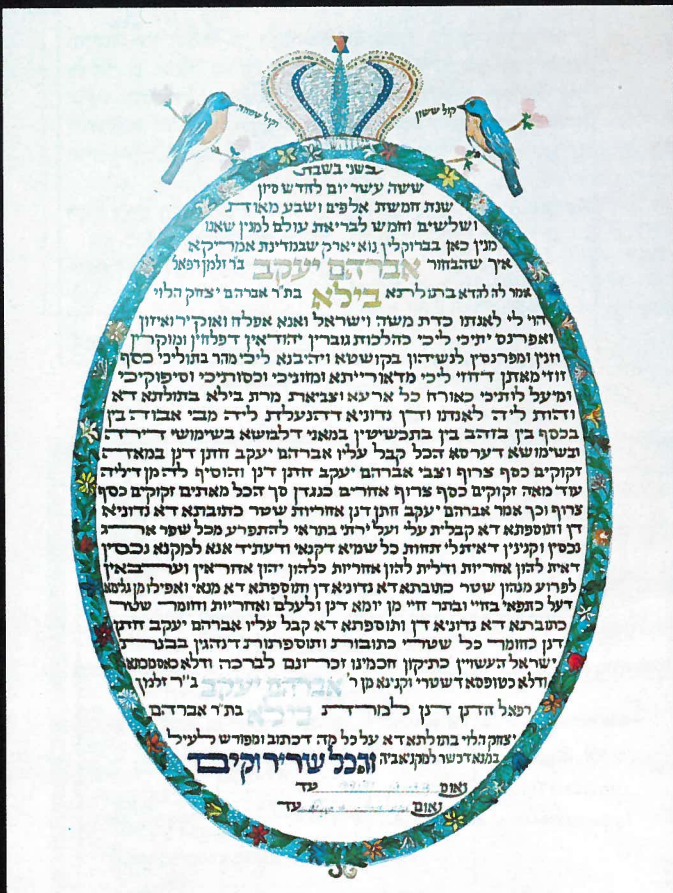 קול ששון
וקול שמחה
בשני בשבת
ששה עשר יום לחדש סיון
שנת חמשת אלפים ושבע מאות
ושלשים וחמש לבריאת עולם למנין שאנו
מנין כאן בברוקלין נוא יארק שבמדינת אמריקא
איך שהבחור אברהם יעקב ב״ר זלמן רפאל
אמר לה להדא בתולתא בילא בת״ר אברהם יצחק הלוי
הוי לי לאנתו כדת משה וישראל ואנא אפלח ואוקיר ואיזון
ואפרנס יתיכי ליכי כהלכות גוברין יהודאין דפלחין ומוקרין
וזנין ומפרנסין לנשיהון בקושטא ויהיבנא ליכי מהר בתוליכי כסף
זוזי מאתן דחזי ליכי מדאורייתא ומזוניכי וכסותיכי וסיפוקיכי
ומיעל לותיכי כאורח כל ארעא וצביאת מרת בילא בתולתא דא
והות ליה לאנתו ודן נדוניא דהנעלת ליה מבי אבוה בין
בכסף בין בזהב בין בתכשיטין במאני דלבושא בשימושי דירה
ובשימושא דערסא הכל קבל עליו אברהם יעקב חתן דנן במאה
זקוקים כסף צרוף וצבי אברהם יעקב חתן דנן והוסיף לה מן דיליה
עוד מאה זקוקים כסף צרוף אחרים כנגדן סך הכל מאתים זקוקים כסף
צרוף וכך אמר אברהם יעקב חתן דנן אחריות שטר כתובתא דא נדוניא
דן ותוספתא דא קבלית עלי ועל ירתי בתראי להתפרע מכל שפר ארג
נכסין וקנינין דאית לי תחות כל שמיא דקנאי ודעתיד אנא למקנא נכסין
דאית להון אחריות ודלית להון אחריות כלהון יהון אחראין וערבאין
לפרוע מנהון שטר כתובתא דא נדוניא דן ותוספתא דא מנאי ואפילו מן גלימא
דעל כתפאי בחיי ובתר חיי מן יומא דנן ולעלם ואחריות וחומר שטר
כתובתא דא נדוניא דן ותוספתא דא קבל עליו אברהם יעקב חתן
דנן כחומר כל שטרי כתובות ותוספתות דנהגין בבנת
ישראל העשויין כתיקון חכמינו זכרונם לברכה ודלא כאסמכתא
ודלא כטופסא דשטרי וקנינא מן ר׳ אברהם יעקב ב״ר זלמן
רפאל חתן דנן למרת בילא בת״ר אברהם
יצחק הלוי בתולתא דא על כל מה דכתוב ומפורש לעיל
במנא דכשר למקניא ביה והכל שריר וקים
נאום עד
נאום עד